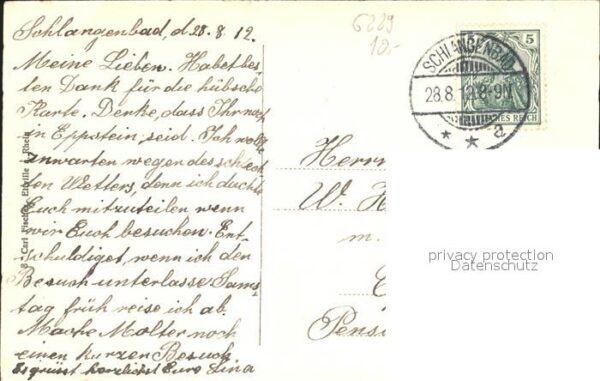 Schlangenbad, d 28.8.12.
Meine Lieben. Habet bes-
ten Dank für die hübsche
Karte. Denke, dass Ihr noch
in Eppstein, seid. Ich wollte
anwarten wegen des schlech-
ten Wetters, denn ich dachte
Euch mitzuteilen wenn
wir Euch besuchen. Ent-
schuldiget, wenn ich den
Besuch unterlasse. Sams-
tag früh reise ich ab.
Mache Molter noch
einen kurzen Besuch
Es grüsst herzlichst Eure Lina
Carl Fischer, Eltville a. Rhein
6229
10.-
5
SCHLANGENBAD
28.8.12.8-9N
a
DEUTSCHES REICH
Herrn
W. H
m.
Pensi
privacy protection
Datenschutz